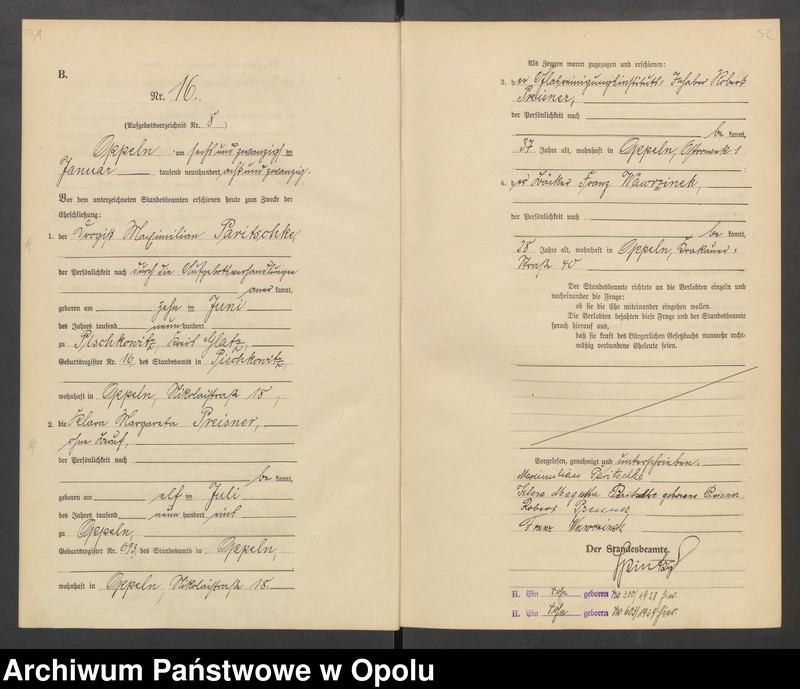 31
B.
Nr. 16.
(Aufgebotsverzeichnis Nr. 8)
Oppeln am sechsundzwanzigsten
Januar tausend neunhundert achtundzwanzig.
Vor dem unterzeichneten Standesbeamten erschienen heute zum Zwecke der
Eheschließung:
1. der Drogist Maximilian Paritschke
der Persönlichkeit nach durch die Aufgebotsverhandlungen
anerkannt,
geboren am zehnten Juni
des Jahres tausend neunhundert
zu Pischkowitz, Kreis Glatz,
Geburtsregister Nr. 16 des Standesamts in Pischkowitz,
wohnhaft in Oppeln, Nikolaistraße 18,
2. die Klara Margareta Preisner,
ohne Beruf,
der Persönlichkeit nach
bekannt,
geboren am elften Juli
des Jahres tausend neunhundert eins
zu Oppeln,
Geburtsregister Nr. 693, des Standesamts in Oppeln,
wohnhaft in Oppeln, Nikolaistraße 18.
32
Als Zeugen waren zugezogen und erschienen:
3. der Inhaber Robert
Preisner,
der Persönlichkeit nach
bekannt,
37 Jahre alt, wohnhaft in Oppeln, Ostrowek 1
4. der Bäcker Franz Wawrzinek,
der Persönlichkeit nach
bekannt,
28 Jahre alt, wohnhaft in Oppeln, Krakauer-
Straße 40
Der Standesbeamte richtete an die Verlobten einzeln und
nacheinander die Frage:
ob sie die Ehe miteinander eingehen wollen.
Die Verlobten bejahten diese Frage und der Standesbeamte
sprach hierauf aus,
daß sie kraft des Bürgerlichen Gesetzbuchs nunmehr recht-
mäßig verbundene Eheleute seien.
Vorgelesen, genehmigt und unterschrieben.
Maximilian Paritschke
Klara Margareta Paritschke geborene Preisner
Robert Preisner
Franz Wawrzinek
Der Standesbeamte.
H. Ein Sohn geboren No 300/1928 hier
H. Ein Sohn geboren No 603/1929 hier
Archiwum Państwowe w Opolu